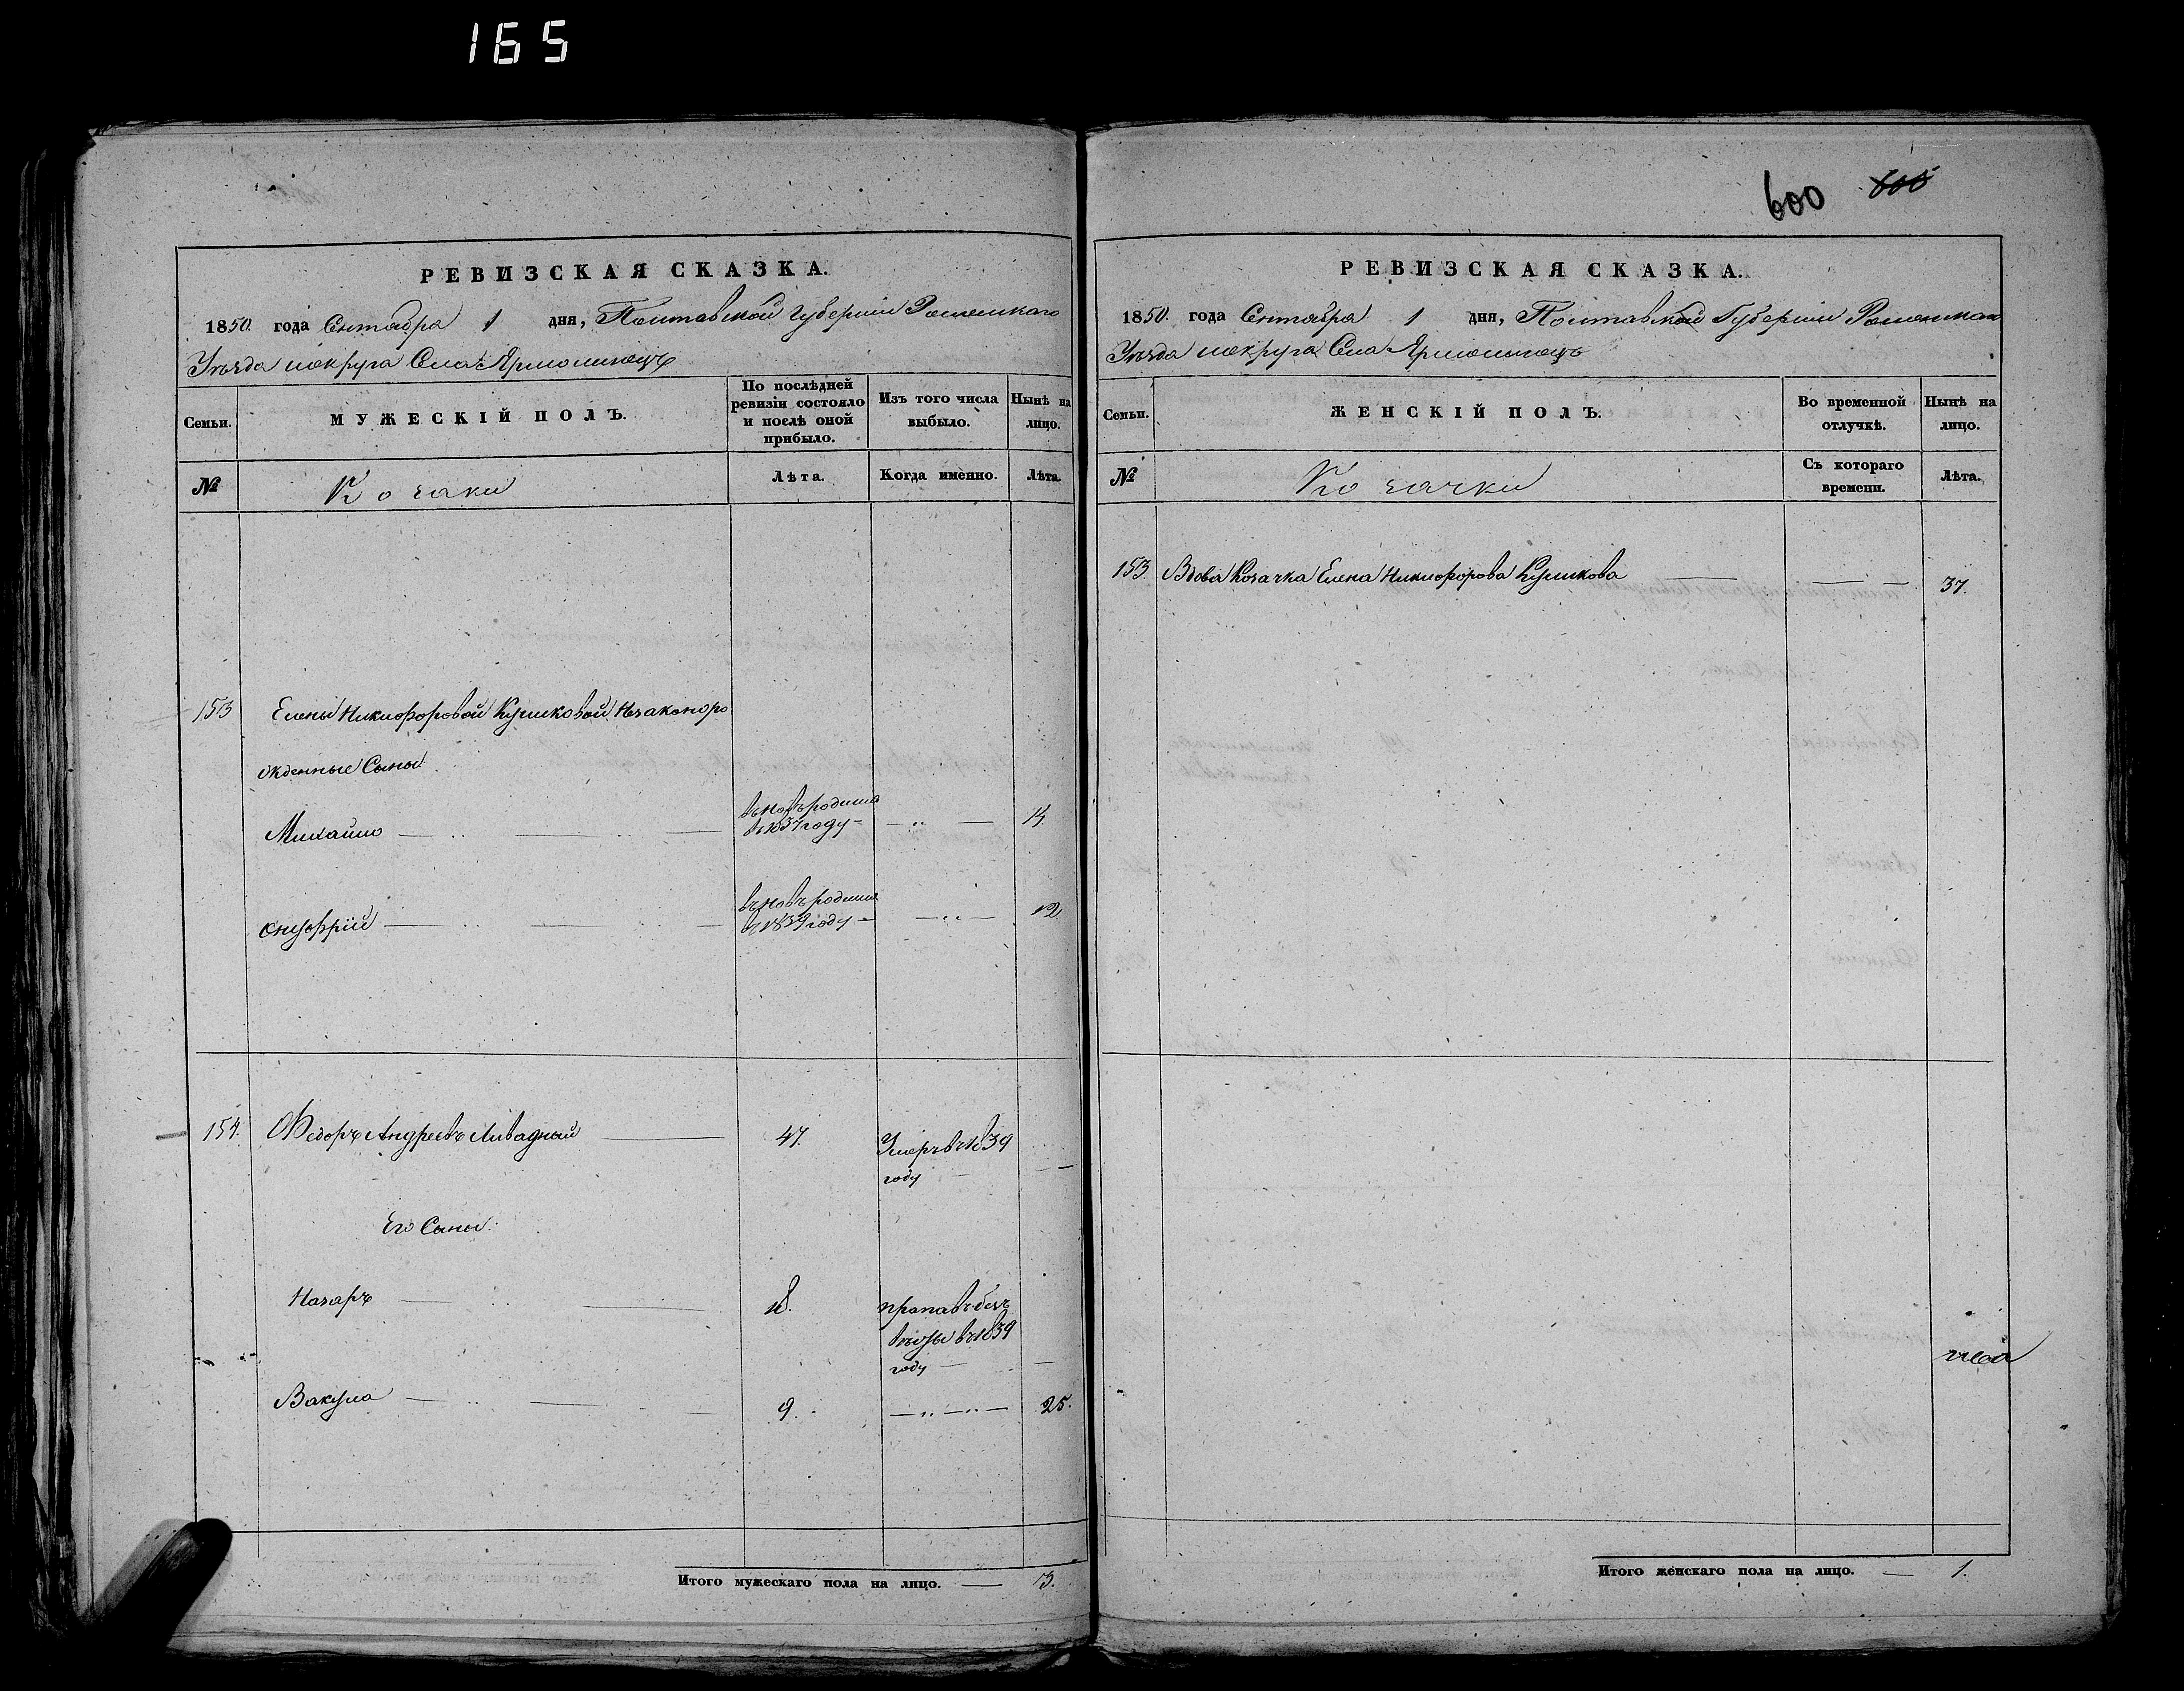 165
РЕВИЗСКАЯ СКАЗКА.
1850. года Сентября 1 дня, Полтавской Губерніи Роменскаго
Уѣзда и округа Села Ярмолинецъ
Семьи.
МУЖЕСКІЙ ПОЛЪ.
По послѣдней ревизіи состояло и послѣ оной прибыло.
Изъ того числа выбыло.
Нынѣ на лицо.
№
Козаки
Лѣта.
Когда именно.
Лѣта.
153 Елены Никифоровой Куликовой Незаконоро
жденные Сыны:
Михайло вновь родился в 1837 году 14.
Онуфрій вновь родился в 1839 году 12
154. Федоръ Андреевъ Ливадный 47. Умеръ въ 1839
году
Его Сыны:
Назаръ 18. пропавъ безъ
вѣсти въ 1839
году
Вакула 9. 25.
Итого мужескаго пола на лицо. 3.
600 600
РЕВИЗСКАЯ СКАЗКА.
1850. года Сентября 1 дня, Полтавской Губерніи Роменскаго
Уѣзда и округа Села Ярмолинецъ
Семьи.
ЖЕНСКІЙ ПОЛЪ.
Во временной отлучкѣ.
Нынѣ на лицо.
№
Козачки
Съ котораго времени.
Лѣта.
153. Вдова Козачка Елена Никифорова Куликова 37.
Итого женскаго пола на лицо. 1.